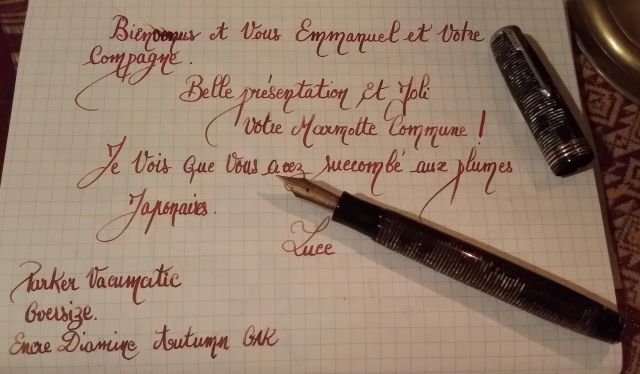 Bienvenus à Vous Emmanuel et Votre
Compagne.
Belle présentation et Joli
Votre Marmotte Commune !
Je Vois que Vous avez succombé aux plumes
Japonaises.
Luce
Parker Vacumatic
Oversize.
Encre Diamine Autumn OAK